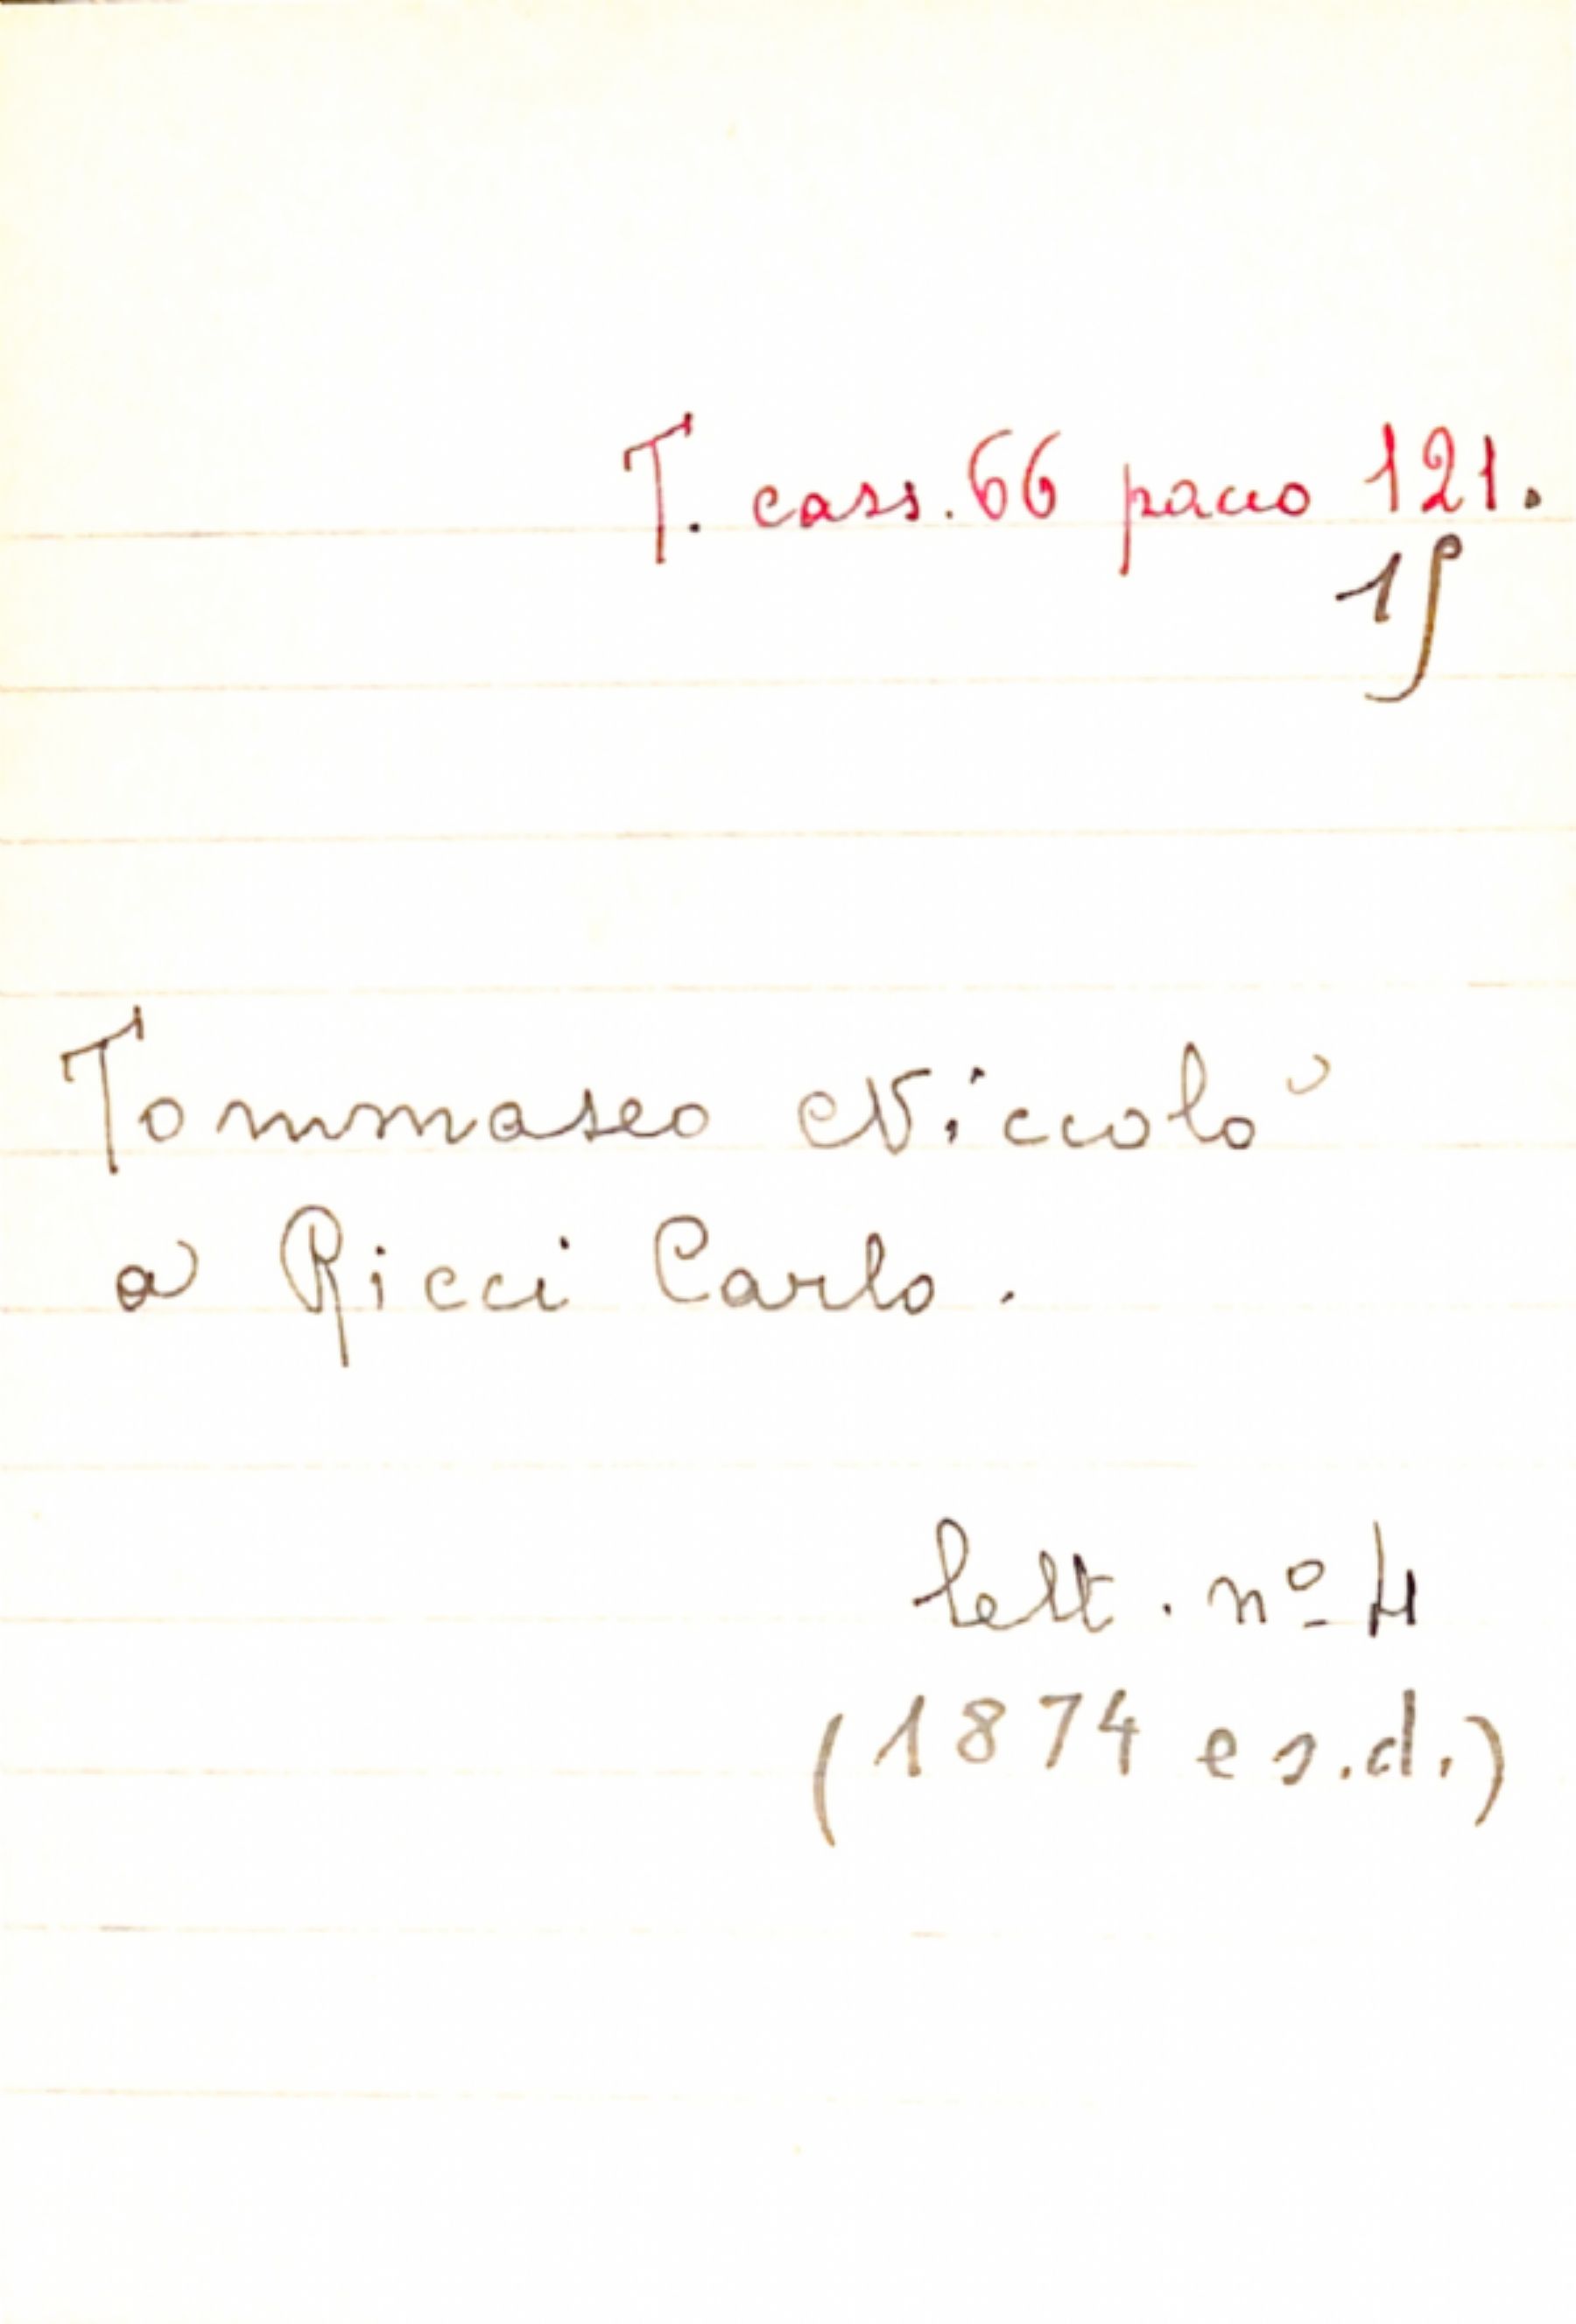 T. cass. 66 pacco 121.
15
Tommaseo Niccolò
a Ricci Carlo.
lett. nº 4
(1874 e s.d.)